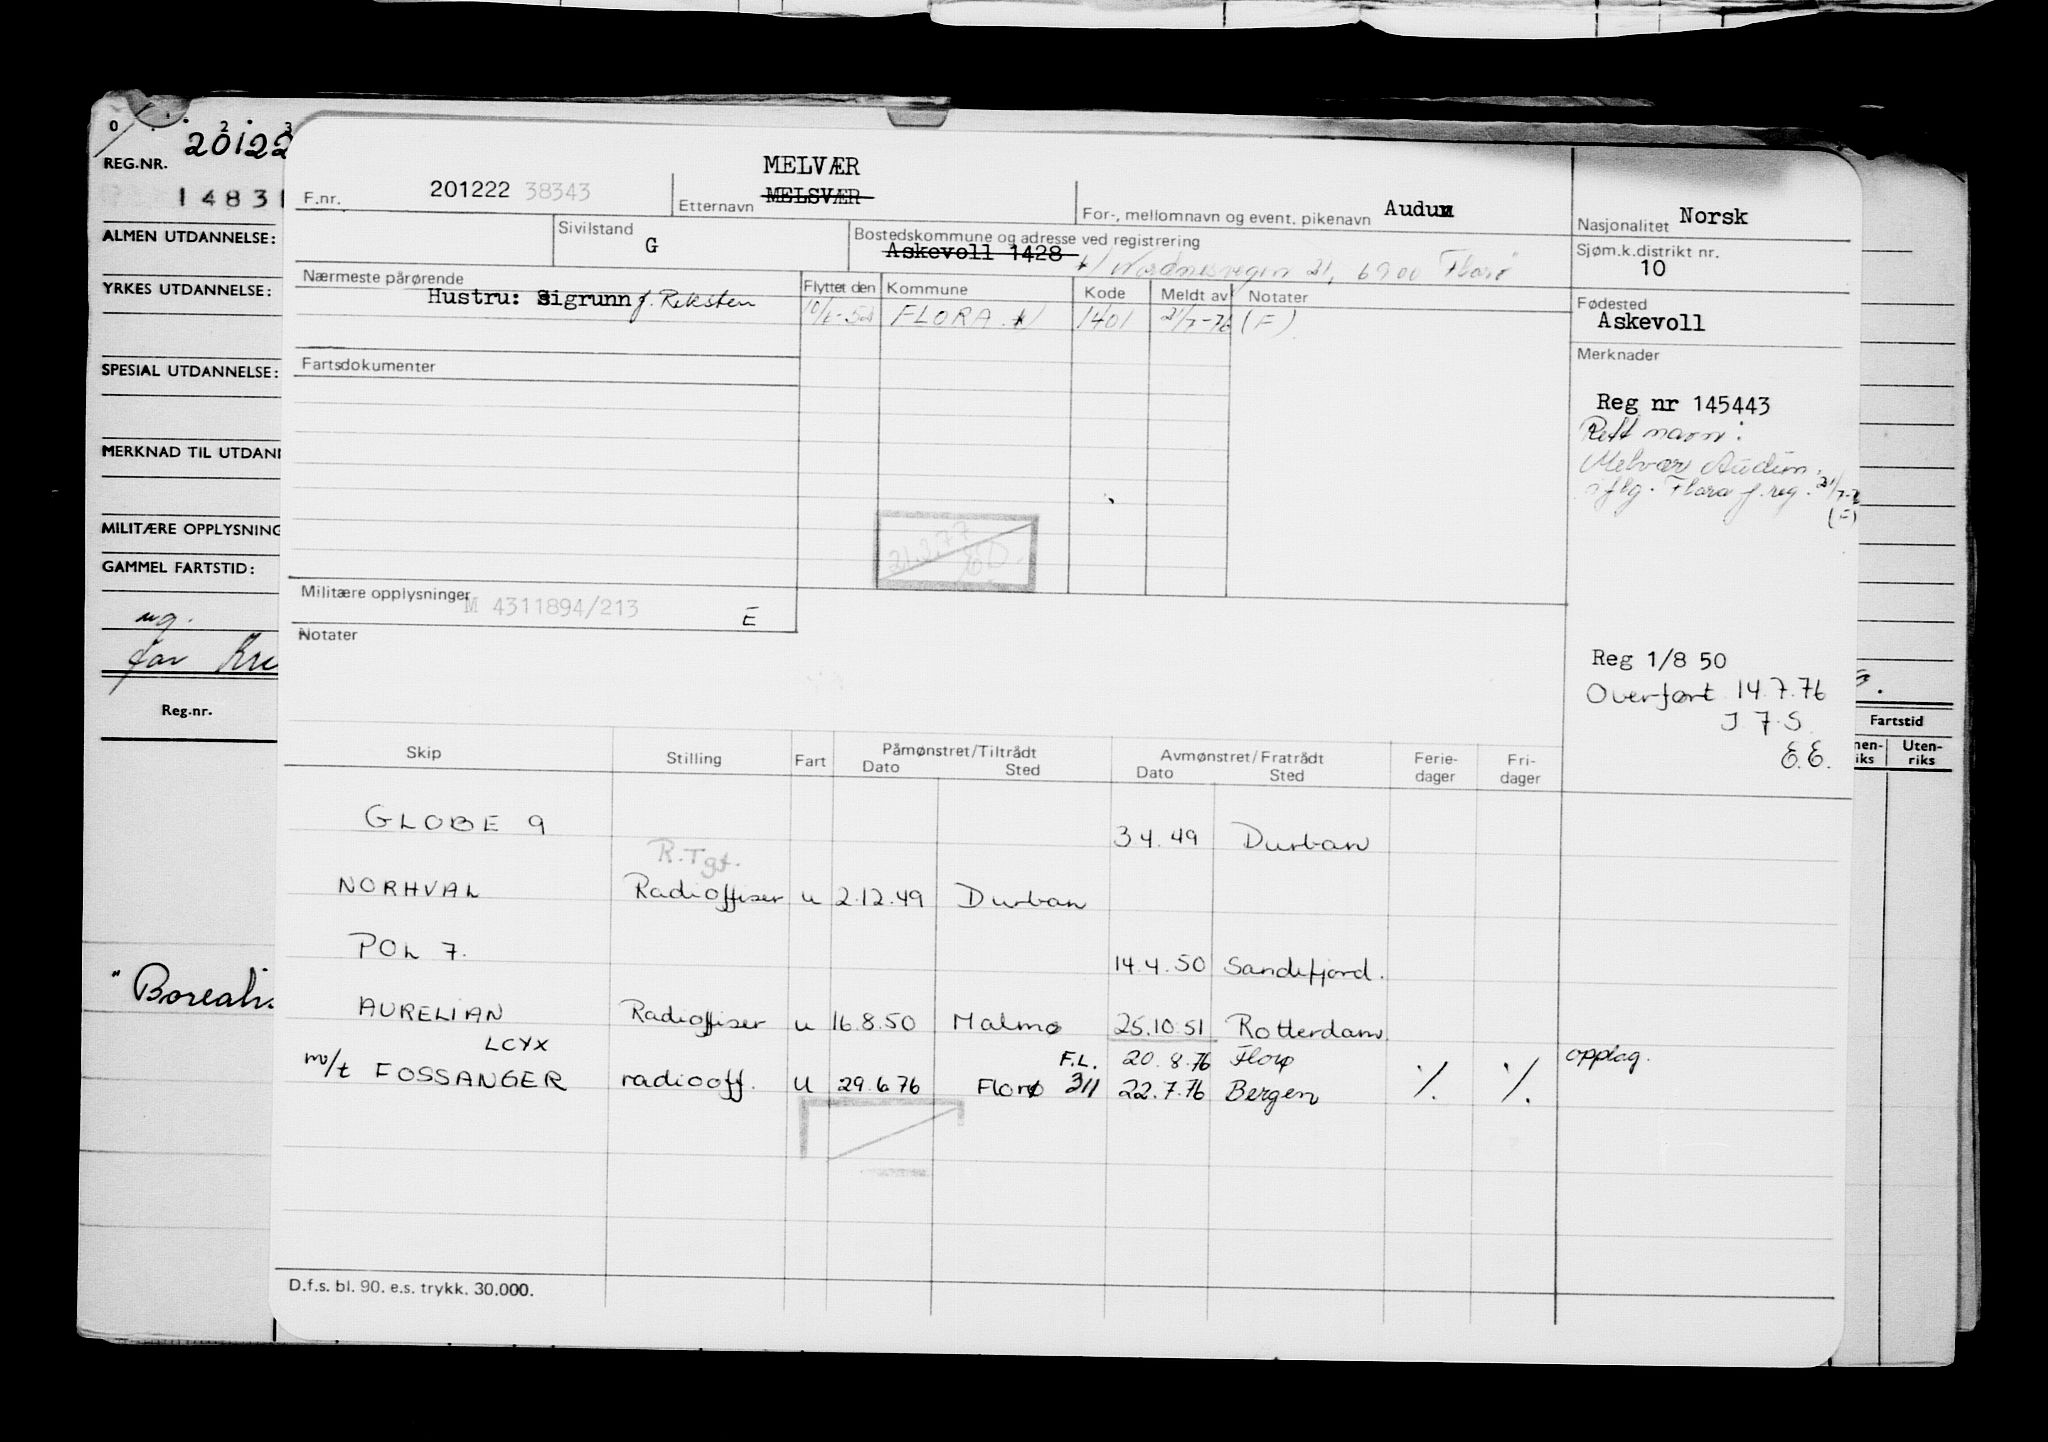 0 2 3
REG.NR. 20122
14831
ALMEN UTDANNELSE:
YRKES UTDANNELSE:
SPESIAL UTDANNELSE:
MERKNAD TIL UTDAN
MILITÆRE OPPLYSNING
GAMMEL FARTSTID:
Reg.nr.
"Boreali
MELVÆR
F.nr. 201222 38343 Etternavn MELSVÆR For-, mellomnavn og event. pikenavn Audun Nasjonalitet Norsk
Sivilstand G Bostedskommune og adresse ved registrering Sjøm.k.distrikt nr. 10
Askevoll 1428 Nordnesvegen 21, 6900 Florø
Nærmeste pårørende Flyttet den Kommune Kode Meldt av Notater Fødested
Hustru: Sigrunn f. Reksten FLORA 1401 21/7-76 (F) Askevoll
Fartsdokumenter Merknader
Reg nr 145443
Rett navn:
Melvær Audun.
iflg. Flora f.reg. 21/7-76
(F)
21.2.77
Militære opplysninger M 4311894/213 E
Notater
Reg 1/8 50
Overført 14.7.76
J 7 S.
E.E.
Skip Stilling Fart Påmønstret/Tiltrådt Dato Sted Avmønstret/Fratrådt Dato Sted Ferie-dager Fri-dager
GLOBE 9 3 4. 49 Durban
R.Tgt.
NORHVAL Radioffiser u 2.12.49 Durban
POL 7. 14.4.50 Sandefjord.
AURELIAN Radioffiser u 16.8.50 Malmø 25.10.51 Rotterdam
LCYX F.L. 20.8.76 Florø opplag.
m/t FOSSANGER radiooff. U 29.6.76 Florø 311 22.7.76 Bergen ./. ./.
D.f.s. bl. 90. e.s. trykk. 30.000.
Fartstid
nen-riks Uten-riks